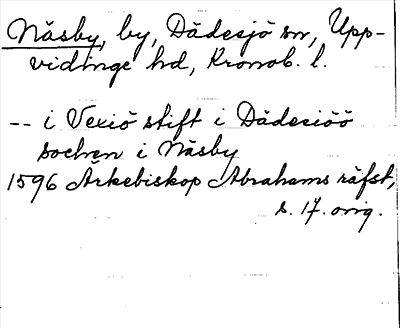 Näsby, by, Dädesjö sn, Upp-
vidinge hd, Kronob. l.
-- i Vexiö stift i Dädesiöö
sochen i Näsby
1596 Arkebiskop Abrahams räfst,
s. 17. orig.